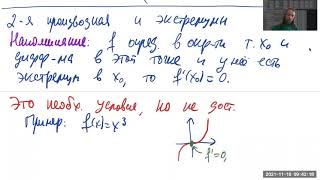 2-я производная и экстремумы
Напоминание: f опред. в окр-ти т. x₀ и
дифф-ма в этой точке и у неё есть
экстремум в x₀, то f'(x₀)=0.
Это необх. условие, но не дост.
Пример: f(x)=x³
f'=0
2021-11-18 09:42:16